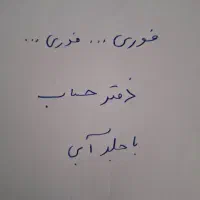 فوری ... فوری ...
دفتر حساب
با جلد آبی